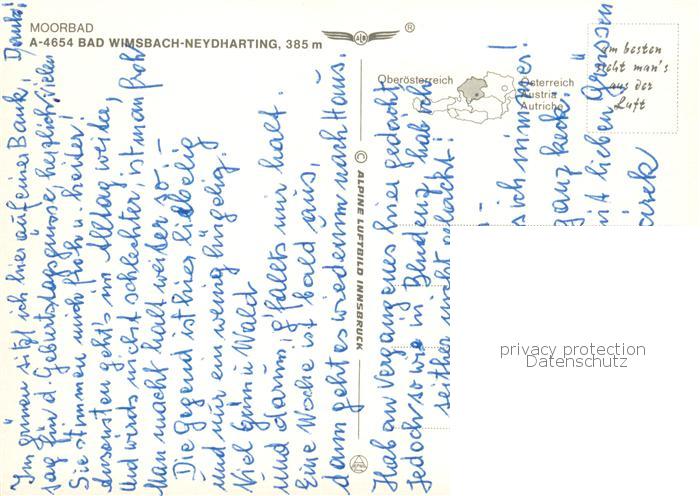 MOORBAD
A-4654 BAD WIMSBACH-NEYDHARTING, 385 m
®
Oberösterreich
Österreich
Austria
Autriche
am besten
sieht man's
aus der
Luft
© ALPINE LUFTBILD INNSBRUCK
Im grünen sitz ich hier auf einer Bank,
sag für d. Geburtstagsgrüsse, herzlich vielen Dank!
Sie stimmen mich froh u. heiter!
Ansonsten geht's im Alltag weiter,
und wirds nicht schlechter, ist man froh
Man macht halt weiter so –
Die Gegend ist hier lieblich
und nur ein wenig hügelig.
Viel Grün u Wald
und darum, g'fallts mir halt.
Eine Woche ist bald aus,
dann geht es wiederum nach Haus.
Hab an Vergangenes hier gedacht
jedoch so wie in Bludenz hab ich
seither nicht gelacht!
–
sich immer!
ganz keck.
mit lieben Grüssen
privacy protection
Datenschutz